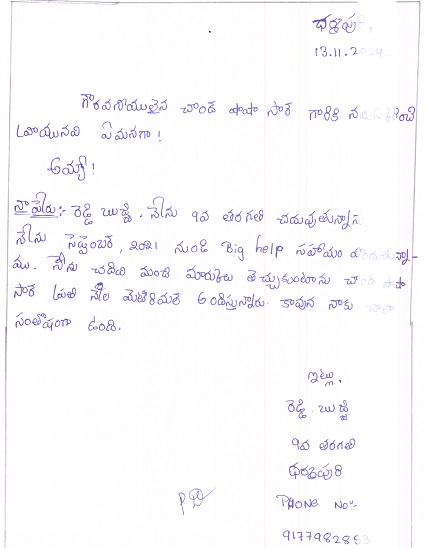 ధర్మపురి,
13.11.2024
గౌరవనీయులైన చాంద్ పాషా సార్ గారికి నమస్కరించి
వ్రాయునది ఏమనగా!
అయ్యా!
నా పేరు:- రెడ్డి ఋషి. నేను 9వ తరగతి చదువుతున్నాను
నేను సెప్టెంబర్, 2021 నుండి Big help సహాయం పొందుతున్నా-
ము. నేను చదివి మంచి మార్కులు తెచ్చుకుంటాను చాంద్ పాషా
సార్ ప్రతి నెల మెటీరియల్ అందిస్తున్నారు. కావున నాకు చాలా
సంతోషంగా ఉంది.
ఇట్లు,
రెడ్డి. ఋషి
9వ తరగతి
ధర్మపురి
PHONE No:-
9177982853